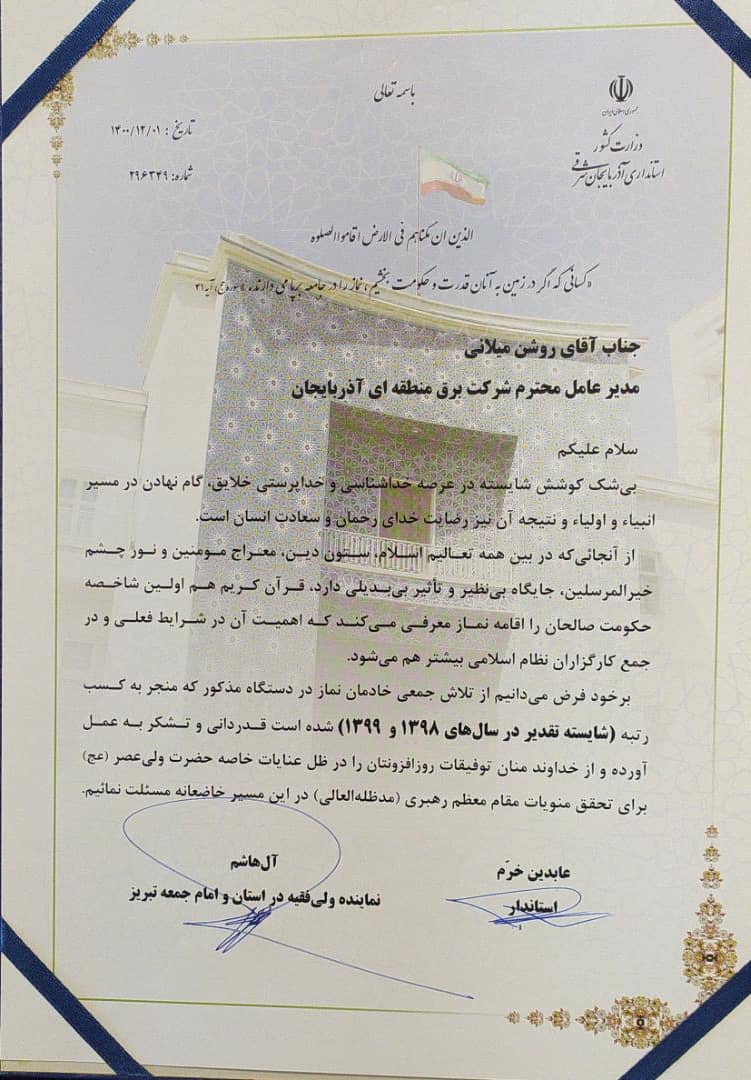 باسمه تعالی
جمهوری اسلامی ایران
وزارت کشور
استانداری آذربایجان شرقی
تاریخ : ۱۴۰۰/۱۲/۰۱
شماره: ۲۹۶۳۴۹
الذین ان مکناهم فی الارض اقاموا الصلوه
«کسانی که اگر در زمین به آنان قدرت و حکومت بخشیم، نماز را در جامعه برپا می دارند» «سوره حج، آیه ۴۱
جناب آقای روشن میلانی
مدیر عامل محترم شرکت برق منطقه ای آذربایجان
سلام علیکم
بی‌شک کوشش شایسته در عرصه خداشناسی و خداپرستی خلایق، گام نهادن در مسیر
انبیاء و اولیاء و نتیجه آن نیز رضایت خدای رحمان و سعادت انسان است.
از آنجائی‌که در بین همه تعالیم اسلام، ستون دین، معراج مومنین و نور چشم
خیرالمرسلین، جایگاه بی‌نظیر و تأثیر بی‌بدیلی دارد، قرآن کریم هم اولین شاخصه
حکومت صالحان را اقامه نماز معرفی می‌کند که اهمیت آن در شرایط فعلی و در
جمع کارگزاران نظام اسلامی بیشتر هم می‌شود.
برخود فرض می‌دانیم از تلاش جمعی خادمان نماز در دستگاه مذکور که منجر به کسب
رتبه (شایسته تقدیر در سال‌های ۱۳۹۸ و ۱۳۹۹) شده است قدردانی و تشکر به عمل
آورده و از خداوند منان توفیقات روزافزونتان را در ظل عنایات خاصه حضرت ولی‌عصر (عج)
برای تحقق منویات مقام معظم رهبری (مدظله‌العالی) در این مسیر خاضعانه مسئلت نمائیم.
عابدین خرّم
استاندار
آل‌هاشم
نماینده ولی‌فقیه در استان و امام جمعه تبریز